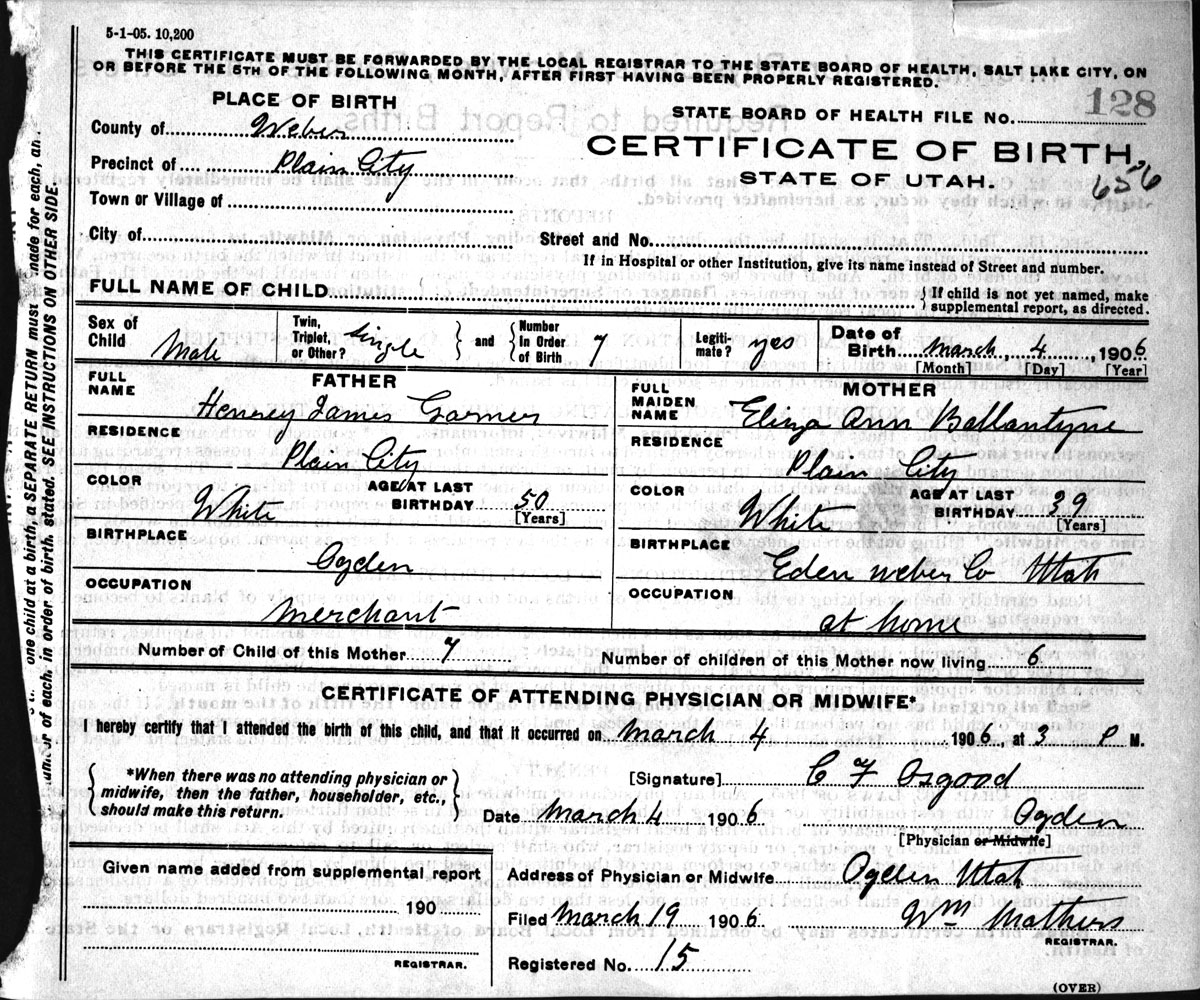 5-1-05. 10,200
THIS CERTIFICATE MUST BE FORWARDED BY THE LOCAL REGISTRAR TO THE STATE BOARD OF HEALTH, SALT LAKE CITY, ON
OR BEFORE THE 5TH OF THE FOLLOWING MONTH, AFTER FIRST HAVING BEEN PROPERLY REGISTERED.
PLACE OF BIRTH
STATE BOARD OF HEALTH FILE NO. 128
County of Weber
CERTIFICATE OF BIRTH
Precinct of Plain City
STATE OF UTAH. 656
Town or Village of
City of Street and No.
If in Hospital or other Institution, give its name instead of Street and number.
FULL NAME OF CHILD If child is not yet named, make
supplemental report, as directed.
Sex of Child Male Twin, Triplet, or Other? Single and Number in Order of Birth 7 Legiti-mate? yes Date of Birth March 4, 1906
[Month] [Day] [Year]
FATHER
FULL NAME Henrey James Garner
RESIDENCE Plain City
COLOR White AGE AT LAST BIRTHDAY 50 [Years]
BIRTHPLACE Ogden
OCCUPATION Merchant
MOTHER
FULL MAIDEN NAME Eliza Ann Ballantyne
RESIDENCE Plain City
COLOR White AGE AT LAST BIRTHDAY 39 [Years]
BIRTHPLACE Eden Weber Co Utah
OCCUPATION at home
Number of Child of this Mother 7 Number of children of this Mother now living 6
CERTIFICATE OF ATTENDING PHYSICIAN OR MIDWIFE*
I hereby certify that I attended the birth of this child, and that it occurred on March 4 1906, at 3 P M.
*When there was no attending physician or
midwife, then the father, householder, etc.,
should make this return.
[Signature] C F Osgood
Date March 4 1906 Ogden
[Physician or Midwife]
Given name added from supplemental report
190
REGISTRAR.
Address of Physician or Midwife Ogden Utah
Filed March 19 1906 Wm Mathers
REGISTRAR.
Registered No. 15
(OVER)
one child at a birth, a SEPARATE RETURN must made for each, an
of each, in order of birth, stated. SEE INSTRUCTIONS ON OTHER SIDE.